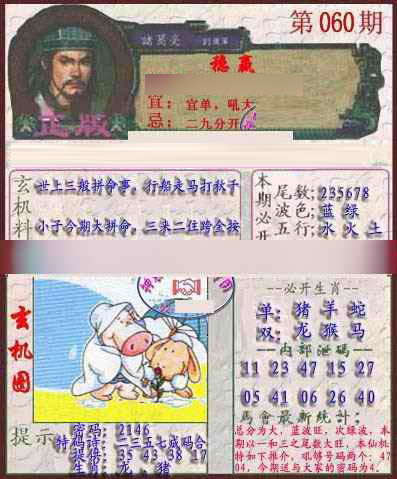 第060期
諸葛亮
稳赢
宜：宜单，吼大
忌：二九分开
正版
玄机料
世上三般拼命事，行船走马打秋千
小子今期大拼命，三来二往跨金按
本期必开
尾数：235678
波色：蓝 绿
五行：水 火 土
玄机图
--必开生肖--
单：猪 羊 蛇
双：龙 猴 马
--内部泄码--
11 23 47 15 27
05 41 06 26 40
馬會最新統計：
总分为大，蓝波旺，次绿波，本
期以一和三之尾数大旺，本仙机
特如下推介，吼够号码两个：47
04，今期送与大家的密码为4.
提示
密码：2146
特码诗：二三五七成码合
提供：35 43 38 17
生肖：龙、猪